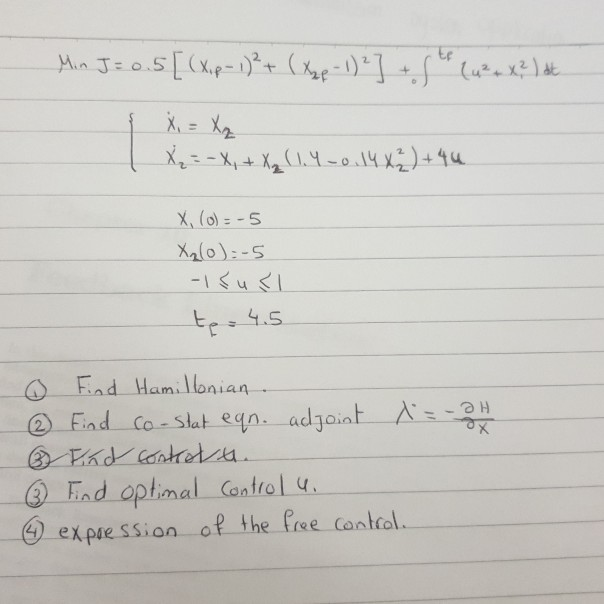 Min J = 0.5 [(x₁f - 1)² + (x₂f - 1)²] + ₀∫^tf (u² + x₁²) dt
ẋ₁ = x₂
ẋ₂ = -x₁ + x₂ (1.4 - 0.14 x₂²) + 4u
x₁(0) = -5
x₂(0) = -5
-1 ≤ u ≤ 1
tf = 4.5
① Find Hamiltonian.
② Find co-stat eqn. adjoint λ̇ = -∂H/∂x
③ Find control u.
③ Find optimal control u.
④ expression of the free control.